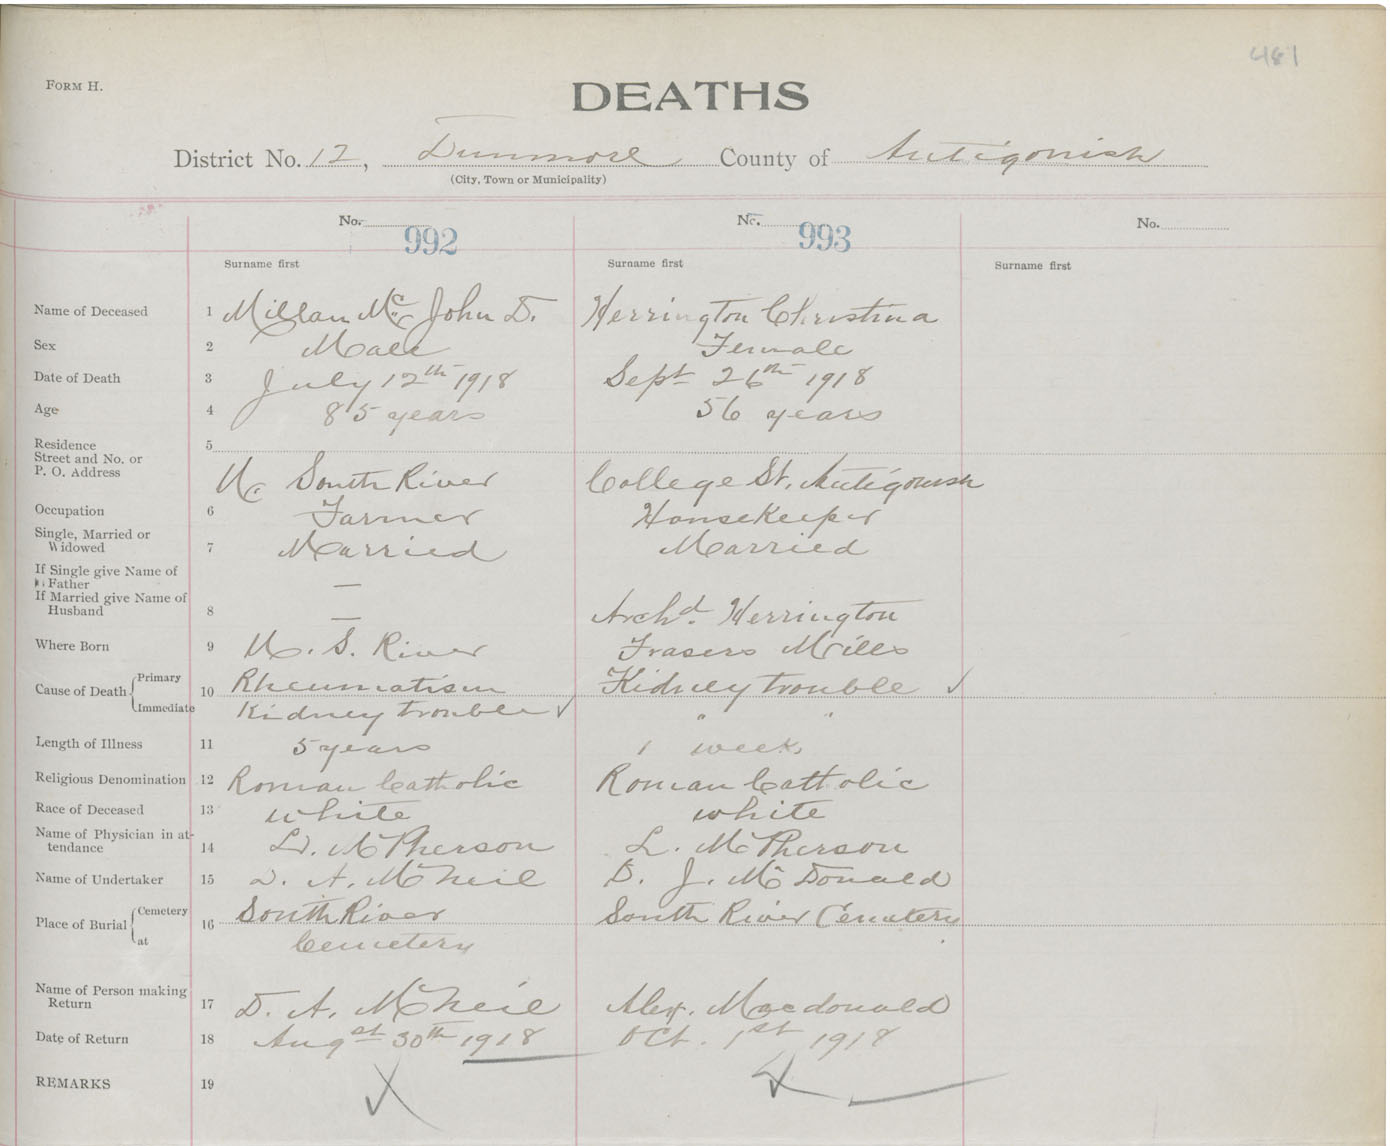 481
FORM H.
DEATHS
District No. 12, Dunmore County of Antigonish
(City, Town or Municipality)
No. 992 No. 993 No.
Surname first Surname first Surname first
Name of Deceased 1 Millan Mc John D. Herrington Christina
Sex 2 Male Female
Date of Death 3 July 12th 1918 Sept 26th 1918
Age 4 85 years 56 years
Residence 5
Street and No. or
P. O. Address U. South River College St. Antigonish
Occupation 6 Farmer Housekeeper
Single, Married or
Widowed 7 Married Married
If Single give Name of
Father —
If Married give Name of
Husband 8 — Archd. Herrington
Where Born 9 U. S. River Frasers Mills
Cause of Death Primary 10 Rheumatism Kidney trouble ✓
Immediate Kidney trouble ✓ " "
Length of Illness 11 5 years 1 week
Religious Denomination 12 Roman Catholic Roman Catholic
Race of Deceased 13 white white
Name of Physician in at-
tendance 14 W. McPherson L. McPherson
Name of Undertaker 15 D. A. McNeil D. J. McDonald
Place of Burial Cemetery 16 South River South River Cemetery
at Cemetery
Name of Person making
Return 17 D. A. McNeil Alex. Macdonald
Date of Return 18 Augst 30th 1918 Oct. 1st 1918
REMARKS 19